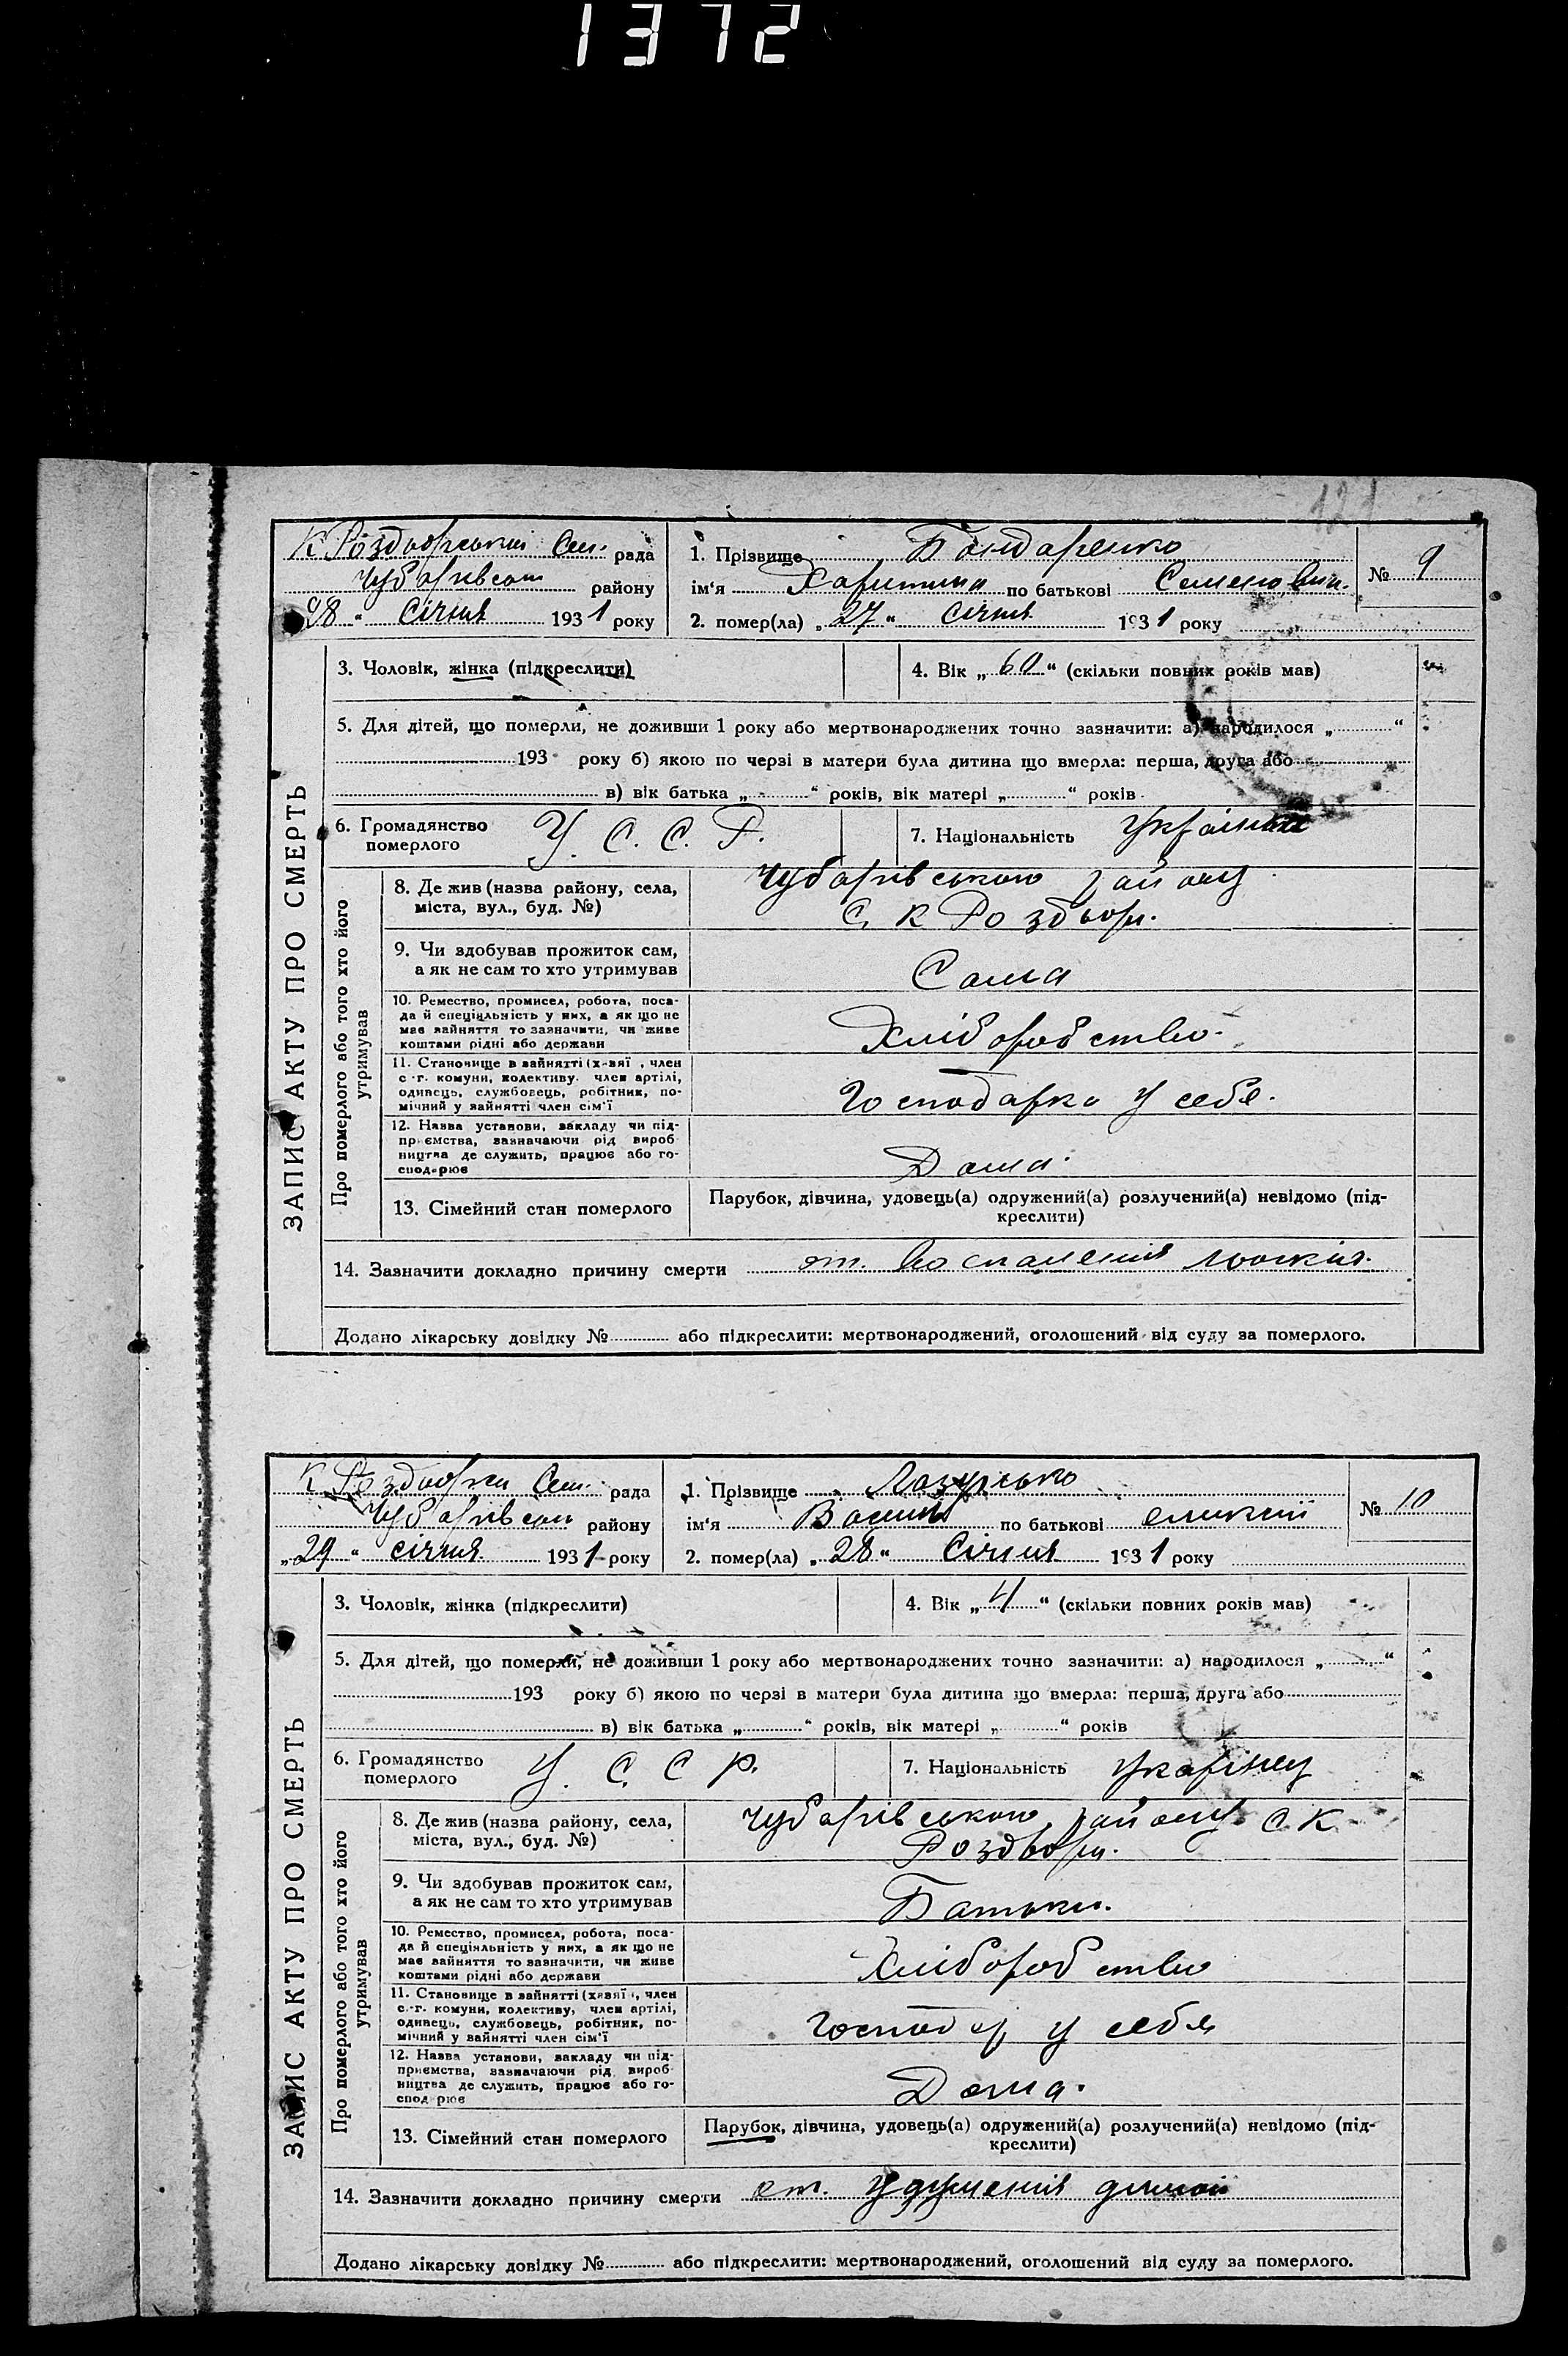 1372
121
К Роздорській Сел. рада
Чубарівськ району
28 " Січня 1931 року
1. Прізвище Бондаренко
ім'я Харитина по батькові Семеновна
№ 9
2. помер(ла) „ 27 " Січня 1931 року
ЗАПИС АКТУ ПРО СМЕРТЬ
3. Чоловік, жінка (підкреслити)
4. Вік „ 60 " (скільки повних років мав)
5. Для дітей, що померли, не доживши 1 року або мертвонароджених точно зазначити: а) народилося „ "
193 року б) якою по черзі в матери була дитина що вмерла: перша, друга або
в) вік батька „ " років, вік матері „ " років
6. Громадянство
померлого
У. С. С. Р.
7. Національність Українка
Про померлого або того хто його
утримував
8. Де жив (назва району, села,
міста, вул., буд. №)
Чубарівського району
С. К Роздори.
9. Чи здобував прожиток сам,
а як не сам то хто утримував
Сама
10. Ремество, промисел, робота, поса-
да й спеціяльність у них, а як що не
має зайняття то зазначити, чи живе
коштами рідні або держави
Хліборобство
11. Становище в зайнятті (х-зяї , член
с.-г. комуни, колективу, член артілі,
одинець, службовець, робітник, по-
мічний у зайнятті член сім'ї
Господарка у себе.
12. Назва установи, закладу чи під-
приємства, зазначаючи рід вироб
ництва де служить, працює або го-
сподарює
Дома.
13. Сімейний стан померлого
Парубок, дівчина, удовець(а) одружений(а) розлучений(а) невідомо (під-
креслити)
14. Зазначити докладно причину смерти от. воспаления
Додано лікарську довідку № або підкреслити: мертвонароджений, оголошений від суду за померлого.
К Роздори Сел. рада
Чубарівськ району
„ 29 " січня 1931 року
1. Прізвище
ім'я Василь по батькові
№ 10
2. помер(ла) „ 28 " Січня 1931 року
ЗАПИС АКТУ ПРО СМЕРТЬ
3. Чоловік, жінка (підкреслити)
4. Вік „ 4 " (скільки повних років мав)
5. Для дітей, що померли, не доживши 1 року або мертвонароджених точно зазначити: а) народилося „ "
193 року б) якою по черзі в матери була дитина що вмерла: перша, друга або
в) вік батька „ " років, вік матері „ " років
6. Громадянство
померлого
У. С. С Р.
7. Національність
Про померлого або того хто його
утримував
8. Де жив (назва району, села,
міста, вул., буд. №)
Чубарівського району С. К
Роздори.
9. Чи здобував прожиток сам,
а як не сам то хто утримував
Батьки.
10. Ремество, промисел, робота, поса-
да й спеціяльність у них, а як що не
має зайняття то зазначити, чи живе
коштами рідні або держави
Хліборобство
11. Становище в зайнятті (хазяї , член
с.-г. комуни, колективу, член артілі,
одинець, службовець, робітник, по-
мічний у зайнятті член сім'ї
Господар у себя
12. Назва установи, закладу чи під-
приємства, зазначаючи рід вироб-
ництва де служить, працює або го-
сподарює
Дома.
13. Сімейний стан померлого
Парубок, дівчина, удовець(а) одружений(а) розлучений(а) невідомо (під-
креслити)
14. Зазначити докладно причину смерти от. удушения
Додано лікарську довідку № або підкреслити: мертвонароджений, оголошений від суду за померлого.